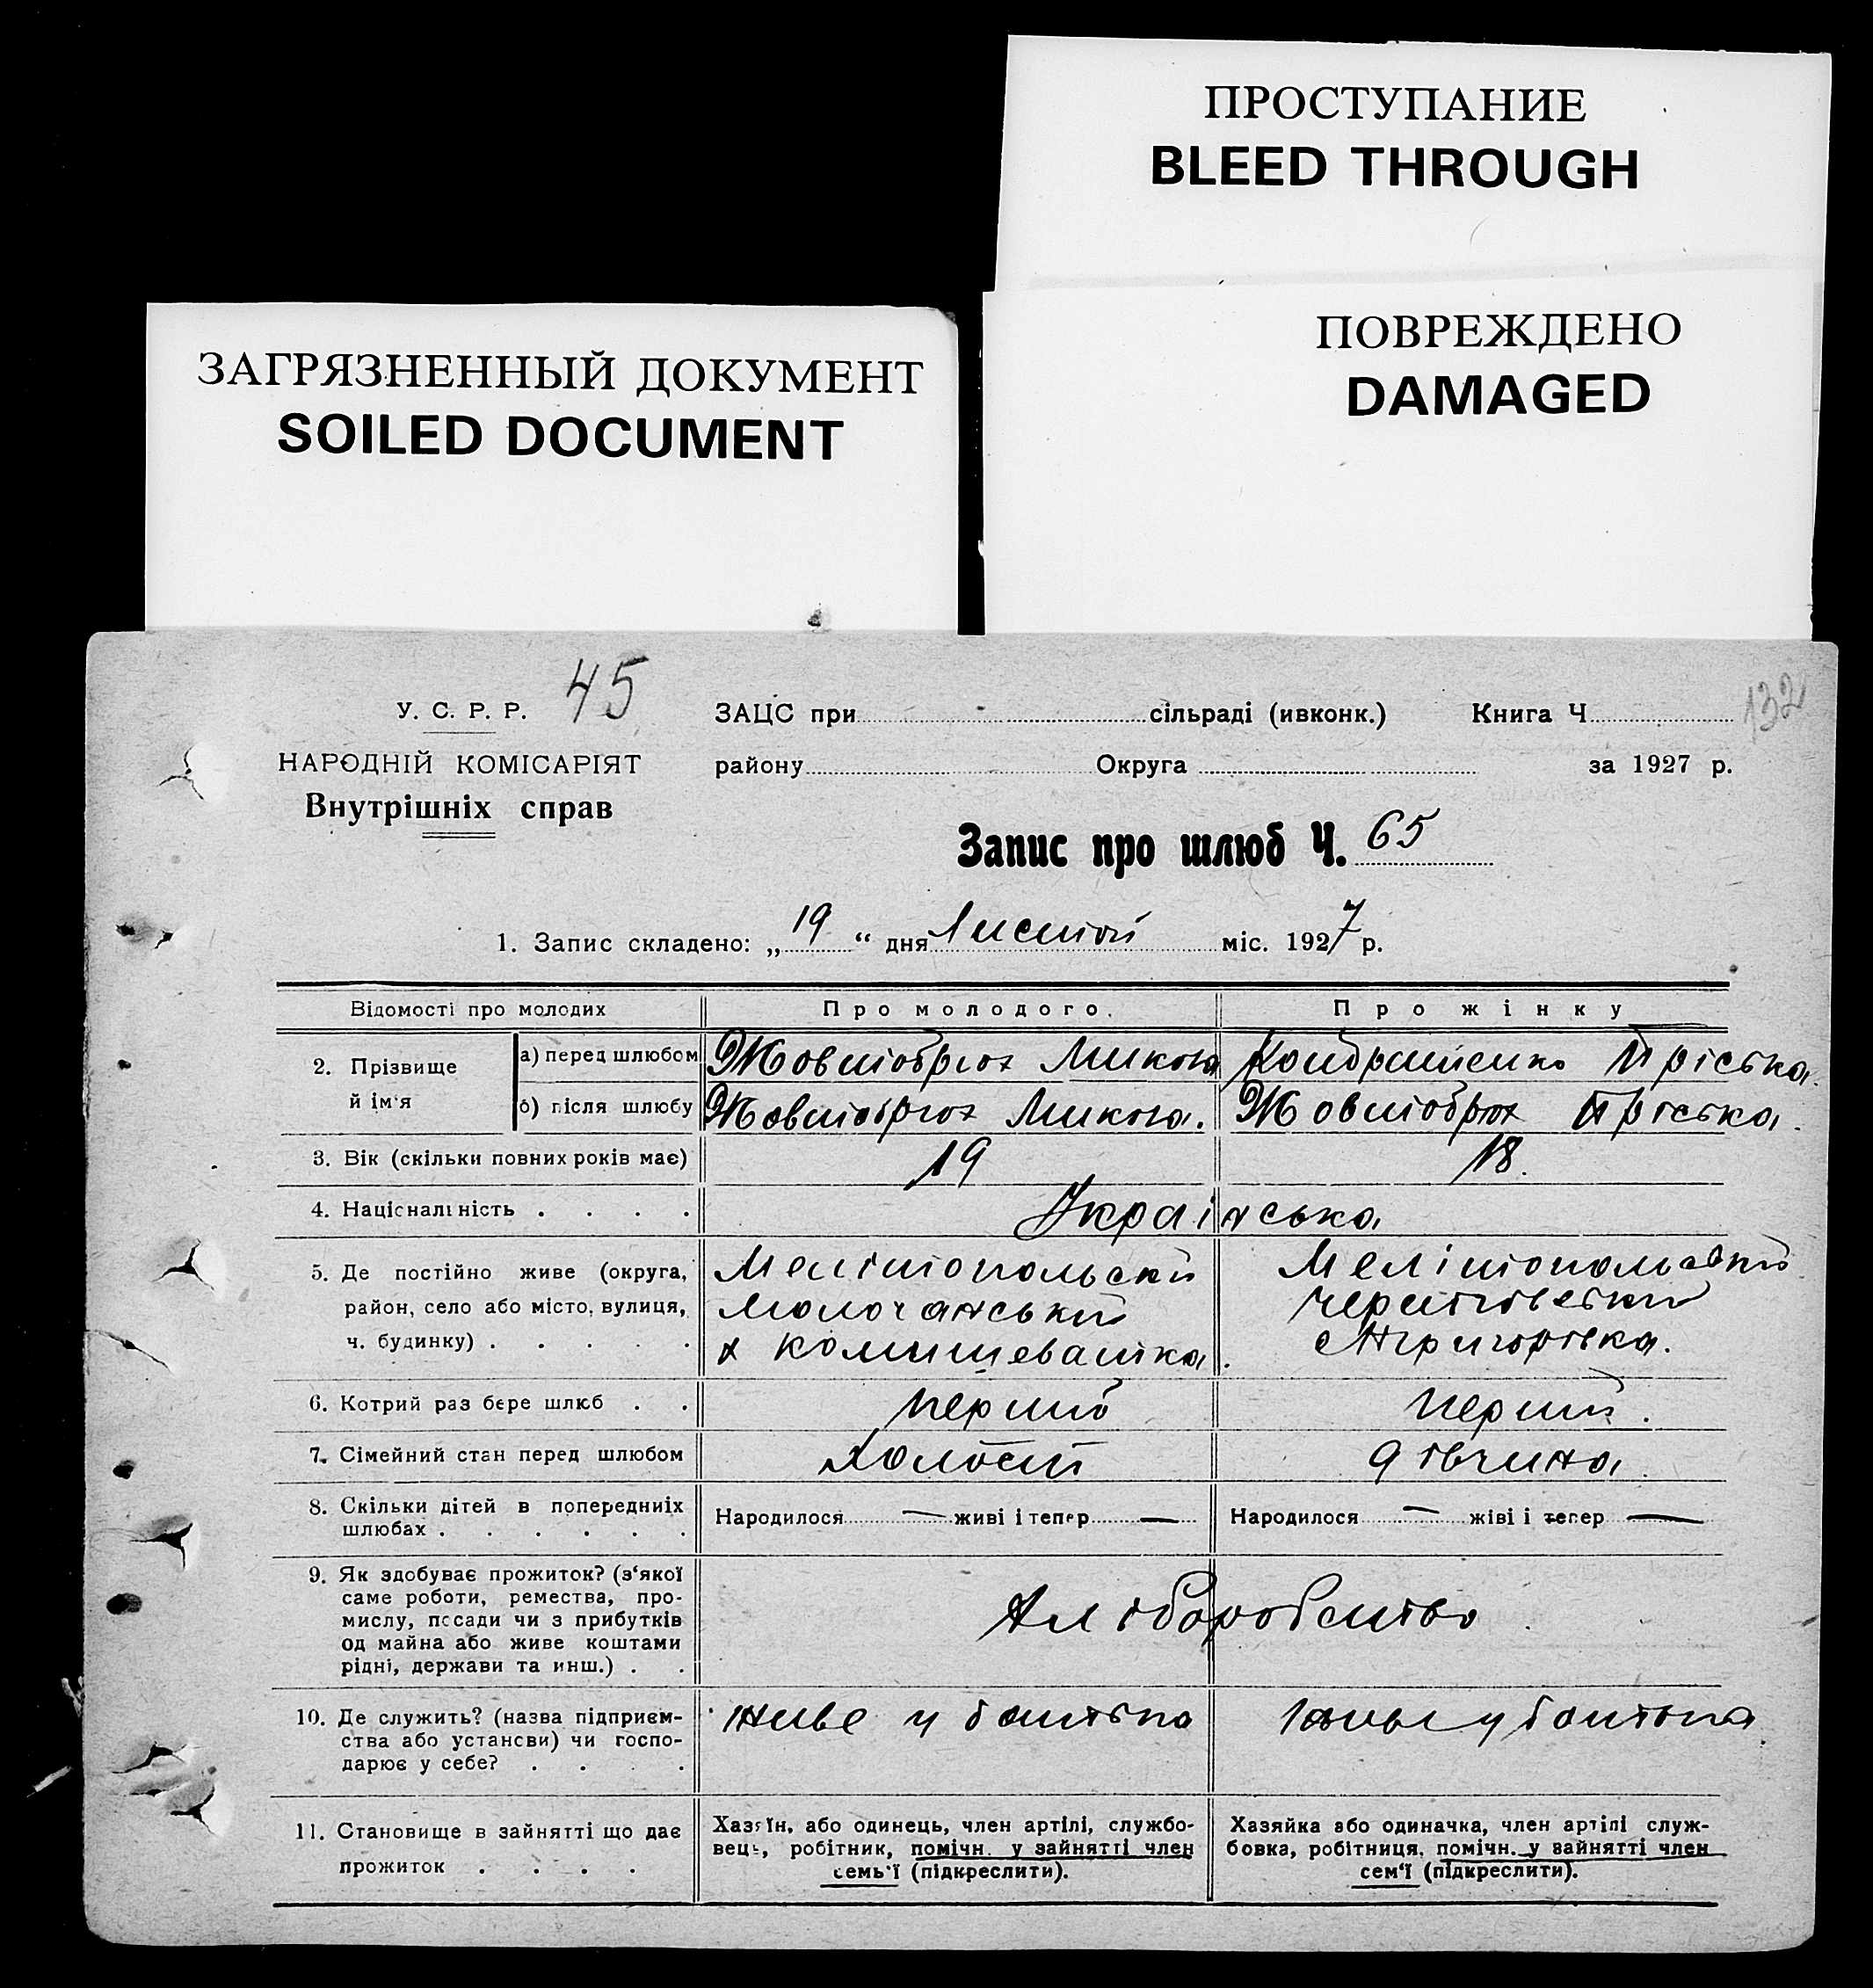 ПРОСТУПАНИЕ
BLEED THROUGH
ПОВРЕЖДЕНО
DAMAGED
ЗАГРЯЗНЕННЫЙ ДОКУМЕНТ
SOILED DOCUMENT
45
132
У. С. Р. Р.
НАРОДНІЙ КОМІСАРІЯТ
Внутрішніх справ
ЗАЦС при сільраді (ивконк.) Книга Ч
району Округа за 1927 р.
Запис про шлюб Ч. 65
1. Запис складено: „19“ дня Листоп міс. 1927 р.
Відомості про молодих Про молодого. Про жінку
2. Прізвище й ім'я
а) перед шлюбом Жовтобрюх Микола Кондратенко Пріська.
б) після шлюбу Жовтобрюх Микола. Жовтобрюх Пріська.
3. Вік (скільки повних років має) 19 18.
4. Національність . . . . Українська
5. Де постійно живе (округа,
район, село або місто, вулиця,
ч. будинку) . . . . .
Мелітопольский
Молочанський
х Комишеватка.
Мелітопольский
Чернігівський
с Нгригорівка.
6. Котрий раз бере шлюб . . Перший Перший.
7. Сімейний стан перед шлюбом Холостий Дівчина
8. Скільки дітей в попередниіх
шлюбах . . . . . .
Народилося — живі і тепер —
Народилося — жіві і тепер —
9. Як здобуває прожиток? (з'якої
саме роботи, ремества, про-
мислу, посади чи з прибутків
од майна або живе коштами
рідні, держави та инш.) . .
Хліборобство
10. Де служить? (назва підприєм-
ства або установи) чи госпо-
дарює у себе? . . . .
живе у батька
у батька
11. Становище в зайнятті що дає
прожиток . . . .
Хазяїн, або одинець, член артілі, службо-
вець, робітник, помічн. у зайнятті член
семь'ї (підкреслити).
Хазяйка або одиначка, член артілі служ-
бовка, робітниця, помічн. у зайнятті член
сем'ї (підкреслити).